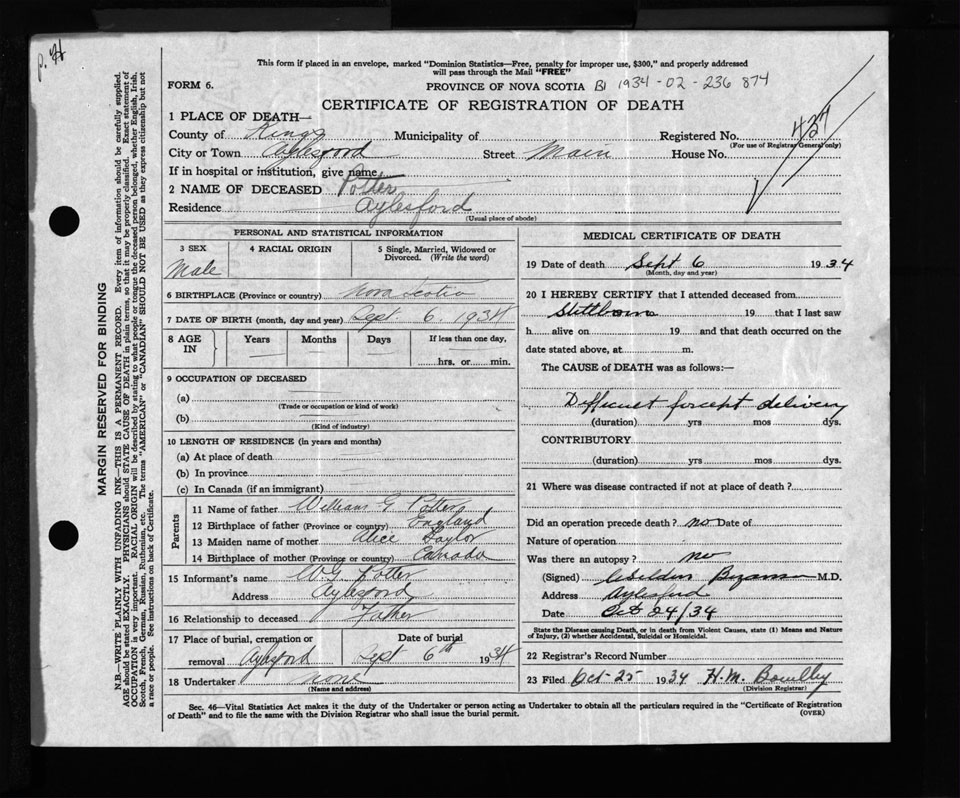 p. 4
This form if placed in an envelope, marked "Dominion Statistics—Free, penalty for improper use, $300," and properly addressed
will pass through the Mail "FREE"
FORM 6.
PROVINCE OF NOVA SCOTIA B1 1934-02-236 874
CERTIFICATE OF REGISTRATION OF DEATH
1 PLACE OF DEATH—
County of Kings Municipality of Registered No. 427
(For use of Registrar General only)
City or Town Aylesford Street Main House No.
If in hospital or institution, give name
2 NAME OF DECEASED Potter
Residence Aylesford
(Usual place of abode)
PERSONAL AND STATISTICAL INFORMATION
3 SEX 4 RACIAL ORIGIN 5 Single, Married, Widowed or
Divorced. (Write the word)
Male
6 BIRTHPLACE (Province or country) Nova Scotia
7 DATE OF BIRTH (month, day and year) Sept. 6. 1934
8 AGE IN Years Months Days If less than one day,
hrs. or min.
9 OCCUPATION OF DECEASED
(a)
(Trade or occupation or kind of work)
(b)
(Kind of industry)
10 LENGTH OF RESIDENCE (in years and months)
(a) At place of death
(b) In province
(c) In Canada (if an immigrant)
Parents
11 Name of father William G. Potter
12 Birthplace of father (Province or country) England
13 Maiden name of mother Alice Saylor
14 Birthplace of mother (Province or country) Canada
15 Informant's name W G Potter
Address Aylesford
16 Relationship to deceased Father
17 Place of burial, cremation or Date of burial
removal Aylesford Sept 6th 1934
18 Undertaker none
(Name and address)
MEDICAL CERTIFICATE OF DEATH
19 Date of death Sept 6 1934
(Month, day and year)
20 I HEREBY CERTIFY that I attended deceased from
Stillborn 19 that I last saw
h alive on 19 and that death occurred on the
date stated above, at m.
The CAUSE of DEATH was as follows:—
Difficult forcept delivery
(duration) yrs mos dys.
CONTRIBUTORY
(duration) yrs. mos dys.
21 Where was disease contracted if not at place of death?
Did an operation precede death? no Date of
Nature of operation
Was there an autopsy? no
(Signed) M.D.
Address Aylesford
Date Oct 24/34
State the Disease causing Death, or in death from Violent Causes, state (1) Means and Nature
of Injury, (2) whether Accidental, Suicidal or Homicidal.
22 Registrar's Record Number
23 Filed Oct-25 1934 H.M.
(Division Registrar)
Sec. 46—Vital Statistics Act makes it the duty of the Undertaker or person acting as Undertaker to obtain all the particulars required in the "Certificate of Registration
of Death" and to file the same with the Division Registrar who shall issue the burial permit.
(OVER)
MARGIN RESERVED FOR BINDING
N.B.—WRITE PLAINLY WITH UNFADING INK—THIS IS A PERMANENT RECORD. Every item of information should be carefully supplied.
AGE should be stated EXACTLY. PHYSICIANS should STATE CAUSE OF DEATH in plain terms, so that it may be properly classified. Exact statement of
OCCUPATION is very important. RACIAL ORIGIN will be described by stating to what people or tongue the deceased person belonged, whether English, Irish,
Scotch, French, German, Russian, Ruthenian, etc. The terms "AMERICAN" or "CANADIAN" SHOULD NOT BE USED as they express citizenship but not
a race or people. See instructions on back of Certificate.